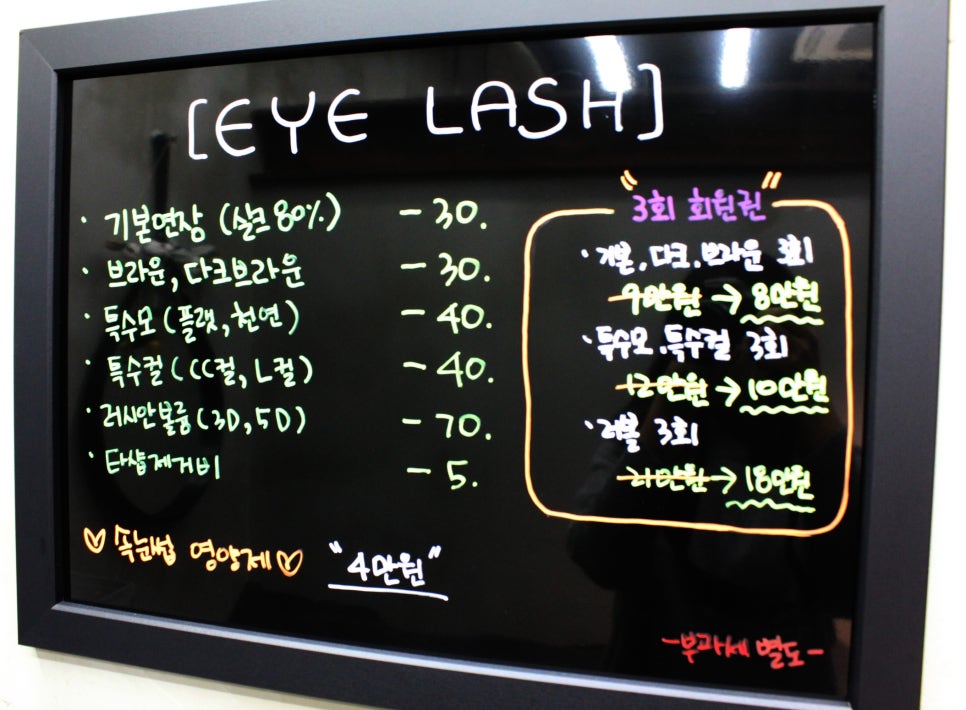 [EYE LASH]
· 기본연장 (실크 80%) - 30.
· 브라운, 다크브라운 - 30.
· 특수모 (플랫, 천연) - 40.
· 특수컬 (CC컬, L컬) - 40.
· 러시안볼륨 (3D, 5D) - 70.
· 타샵제거비 - 5.
♡ 속눈썹 영양제 ♡ "4만원"
"3회 회원권"
· 기본, 다크, 브라운 3회
9만원 → 8만원
· 특수모, 특수컬 3회
12만원 → 10만원
· 러볼 3회
21만원 → 18만원
- 부과세 별도 -